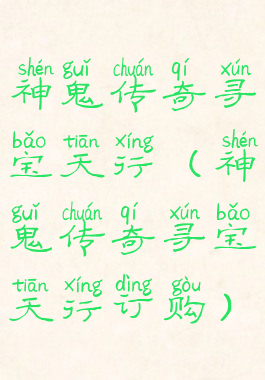 shén guǐ chuán qí xún
神鬼传奇寻
bǎo tiān xíng shén
宝天行（神
guǐ chuán qí xún bǎo
鬼传奇寻宝
tiān xíng dìng gòu
天行订购）